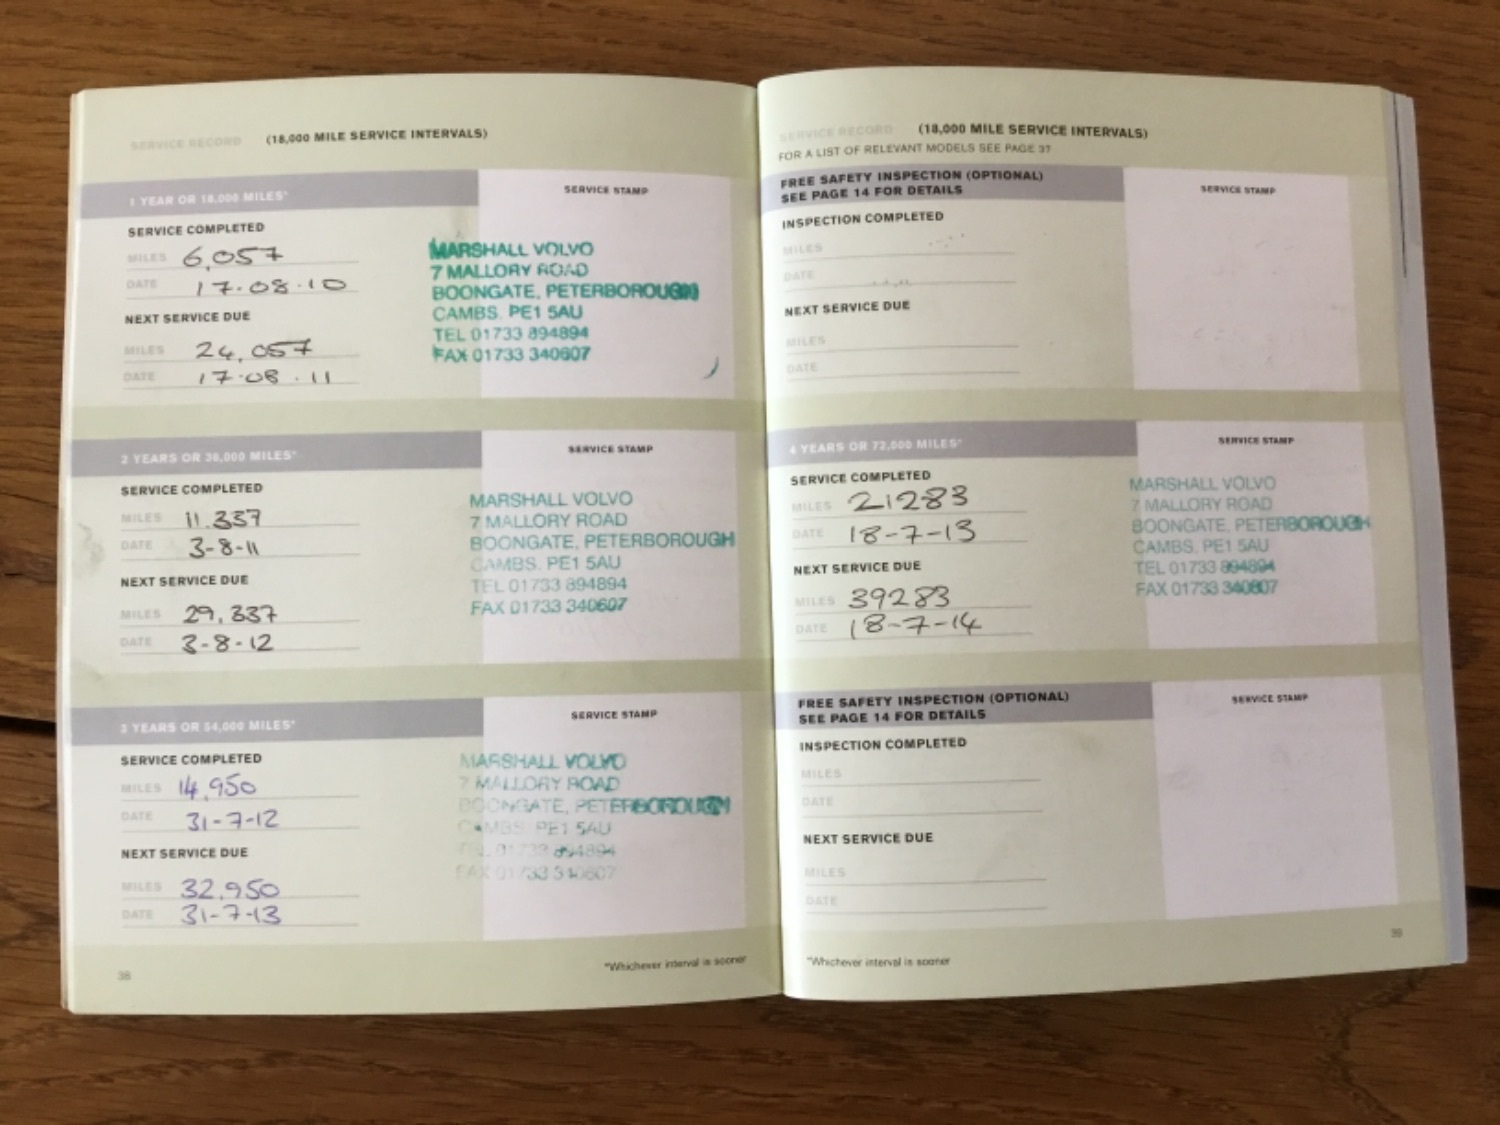 SERVICE RECORD (18,000 MILE SERVICE INTERVALS)
1 YEAR OR 18,000 MILES*
SERVICE STAMP
SERVICE COMPLETED
MILES 6,057
DATE 17.08.10
NEXT SERVICE DUE
MILES 24,057
DATE 17.08.11
MARSHALL VOLVO
7 MALLORY ROAD
BOONGATE, PETERBOROUGH
CAMBS. PE1 5AU
TEL 01733 894894
FAX 01733 340607
2 YEARS OR 36,000 MILES*
SERVICE STAMP
SERVICE COMPLETED
MILES 11.337
DATE 3-8-11
NEXT SERVICE DUE
MILES 29,337
DATE 3-8-12
MARSHALL VOLVO
7 MALLORY ROAD
BOONGATE, PETERBOROUGH
CAMBS. PE1 5AU
TEL 01733 894894
FAX 01733 340607
3 YEARS OR 54,000 MILES*
SERVICE STAMP
SERVICE COMPLETED
MILES 14,950
DATE 31-7-12
NEXT SERVICE DUE
MILES 32,950
DATE 31-7-13
MARSHALL VOLVO
7 MALLORY ROAD
BOONGATE, PETERBOROUGH
CAMBS. PE1 5AU
TEL 01733 894894
FAX 01733 340607
38
*Whichever interval is sooner
SERVICE RECORD (18,000 MILE SERVICE INTERVALS)
FOR A LIST OF RELEVANT MODELS SEE PAGE 37
FREE SAFETY INSPECTION (OPTIONAL)
SEE PAGE 14 FOR DETAILS
SERVICE STAMP
INSPECTION COMPLETED
MILES
DATE
NEXT SERVICE DUE
MILES
DATE
4 YEARS OR 72,000 MILES*
SERVICE STAMP
SERVICE COMPLETED
MILES 21283
DATE 18-7-13
NEXT SERVICE DUE
MILES 39283
DATE 18-7-14
MARSHALL VOLVO
7 MALLORY ROAD
BOONGATE, PETERBOROUGH
CAMBS. PE1 5AU
TEL 01733 894894
FAX 01733 340607
FREE SAFETY INSPECTION (OPTIONAL)
SEE PAGE 14 FOR DETAILS
SERVICE STAMP
INSPECTION COMPLETED
MILES
DATE
NEXT SERVICE DUE
MILES
DATE
*Whichever interval is sooner
39